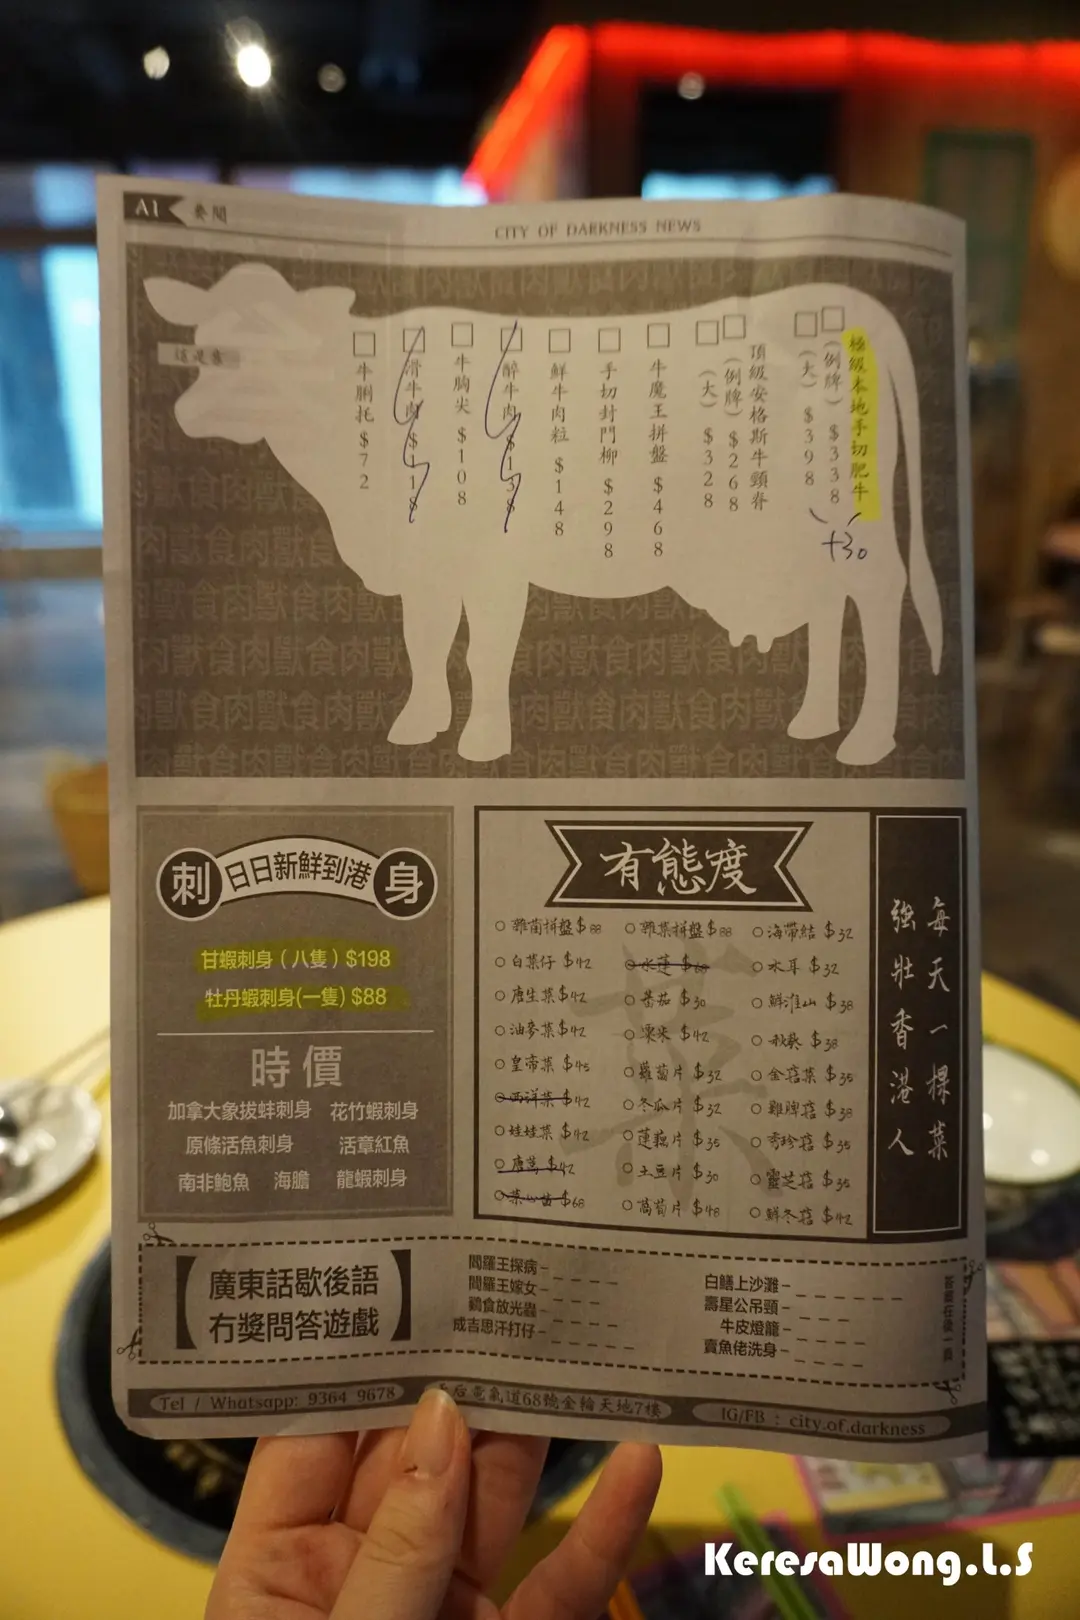 A1 要聞
CITY OF DARKNESS NEWS
極級本地手切肥牛
(例牌) $338
(大) $398
+30
頂級安格斯牛頸脊
(例牌) $268
(大) $328
牛魔王拼盤 $468
手切封門柳 $298
鮮牛肉粒 $148
醉牛肉 $138
牛胸尖 $108
滑牛肉 $118
牛脷托 $72
刺 日日新鮮到港 身
甘蝦刺身(八隻) $198
牡丹蝦刺身(一隻) $88
時價
加拿大象拔蚌刺身 花竹蝦刺身
原條活魚刺身 活章紅魚
南非鮑魚 海膽 龍蝦刺身
有態度
雜菌拼盤 $88
白菜仔 $42
唐生菜 $42
油麥菜 $42
皇帝菜 $45
西洋菜 $42
娃娃菜 $42
唐蒿 $42
菜心苗 $68
雜菜拼盤 $88
水蓮 $68
番茄 $30
粟米 $42
蘿蔔片 $32
冬瓜片 $32
蓮藕片 $35
土豆片 $30
萵筍片 $48
海帶結 $32
木耳 $32
鮮淮山 $38
秋葵 $38
金菇菜 $35
雞脾菇 $38
秀珍菇 $35
靈芝菇 $35
鮮冬菇 $42
菜
每天一棵菜
強壯香港人
【廣東話歇後語
冇獎問答遊戲】
閻羅王探病- _ _ _ _
閻羅王嫁女- _ _ _
鶴食放光蟲- _ _ _ _
成吉思汗打仔- _ _ _ _ _
白鱔上沙灘- _ _ _ _ _ _
壽星公吊頸- _ _ _ _
牛皮燈籠- _ _ _ _
賣魚佬洗身- _ _ _ _
答案在後一頁
Tel / Whatsapp: 9364 9678
后電氣道68號金輪天地7樓
IG/FB : city.of.darkness
KeresaWong.L.S